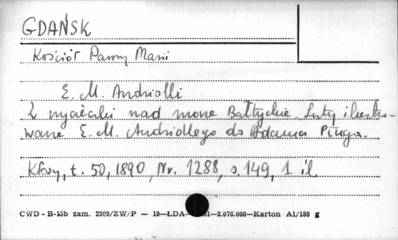 GDAŃSK
Kościół Panny Marii
E. M. Andriolli
Z wycieczki nad morze Bałtyckie. Listy ilustro-
wane E. M. Andriollego do Adama Pługa.
Kłosy, t. 50, 1890, Nr. 1288, s. 149, 1 il.
CWD - B-15b zam. 2909/ZW/P — 19—ŁDA- 61—2.070.000—Karton A1/180 g